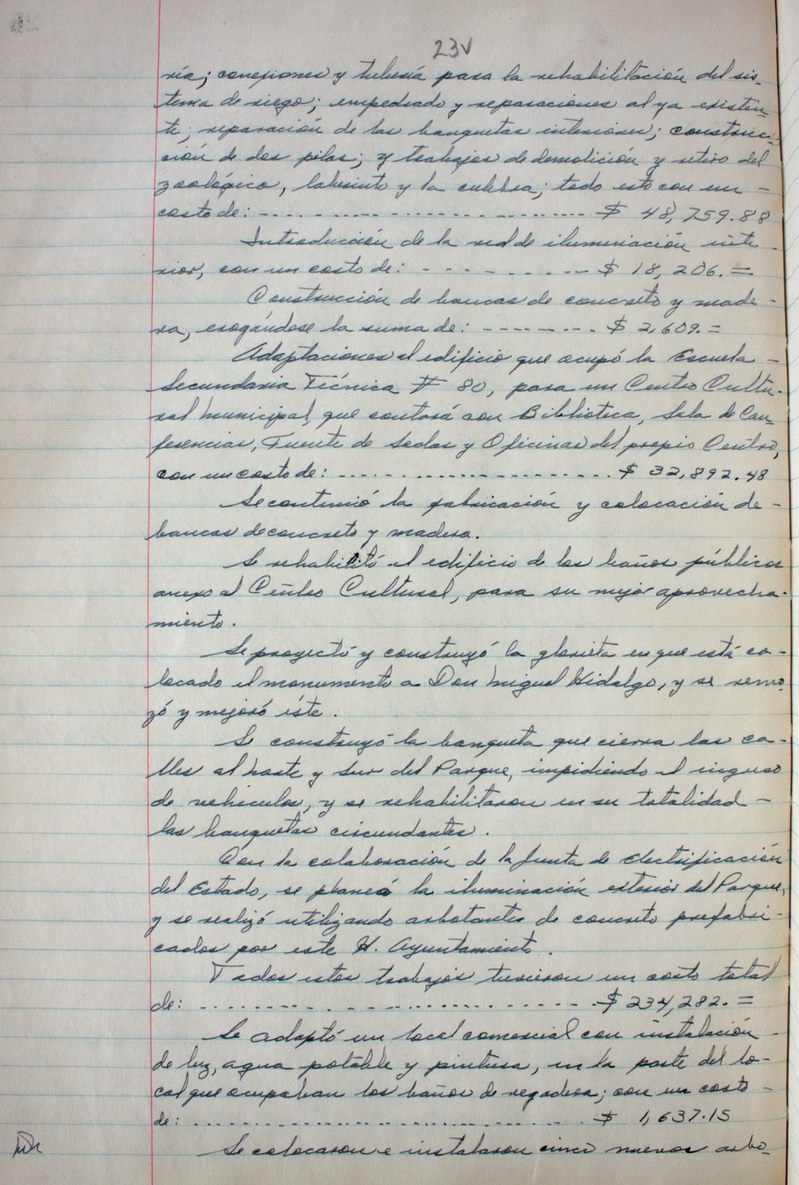 23v
ría; conexiones y tubería para la rehabilitación del sis-
tema de riego; empedrado y reparaciones al ya existen-
te; reparación de las banquetas interiores; construc-
ción de dos pilas; y trabajos de demolición y retiro del
zoológico, laberinto y la culebra; todo esto con un -
costo de: - - - - - - - - - - - - - - - - - - $ 48,759.88
Introducción de la red de iluminación inte-
rior, con un costo de: - - - - - - - - - $ 18,206.=
Construcción de bancas de concreto y made-
ra, erogándose la suma de: - - - - - - - $ 2,609.=
Adaptaciones al edificio que ocupó la Escuela -
Secundaria Técnica # 80, para un Centro Cultu-
ral Municipal, que contará con Biblioteca, Sala de Con-
ferencias, Fuente de Sodas y Oficinas del propio Centro,
con un costo de: - - - - - - - - - - - - - - - - $ 32,892.48
Se continuó la fabricación y colocación de -
bancas de concreto y madera.
Se rehabilitó el edificio de los baños públicos
anexo al Centro Cultural, para su mejor aprovecha-
miento.
Se proyectó y construyó la glorieta en que está co-
locado el monumento a Don Miguel Hidalgo, y se remo-
zó y mejoró éste.
Se construyó la banqueta que cierra las ca-
lles al Norte y Sur del Parque, impidiendo el ingreso
de vehículos, y se rehabilitaron en su totalidad -
las banquetas circundantes.
Con la colaboración de la Junta de Electrificación
del Estado, se planeó la iluminación exterior del Parque,
y se realizó utilizando arbotantes de concreto prefabri-
cados por este H. Ayuntamiento.
Todos estos trabajos tuvieron un costo total
de: - - - - - - - - - - - - - - - - - - - - - - $ 234,282.=
Se adaptó un local comercial con instalación -
de luz, agua potable y pintura, en la parte del lo-
cal que ocupaban los baños de regadera; con un costo -
de: - - - - - - - - - - - - - - - - - - - - - - $ 1,637.15
Se colocaron e instalaron cinco nuevos arbo-